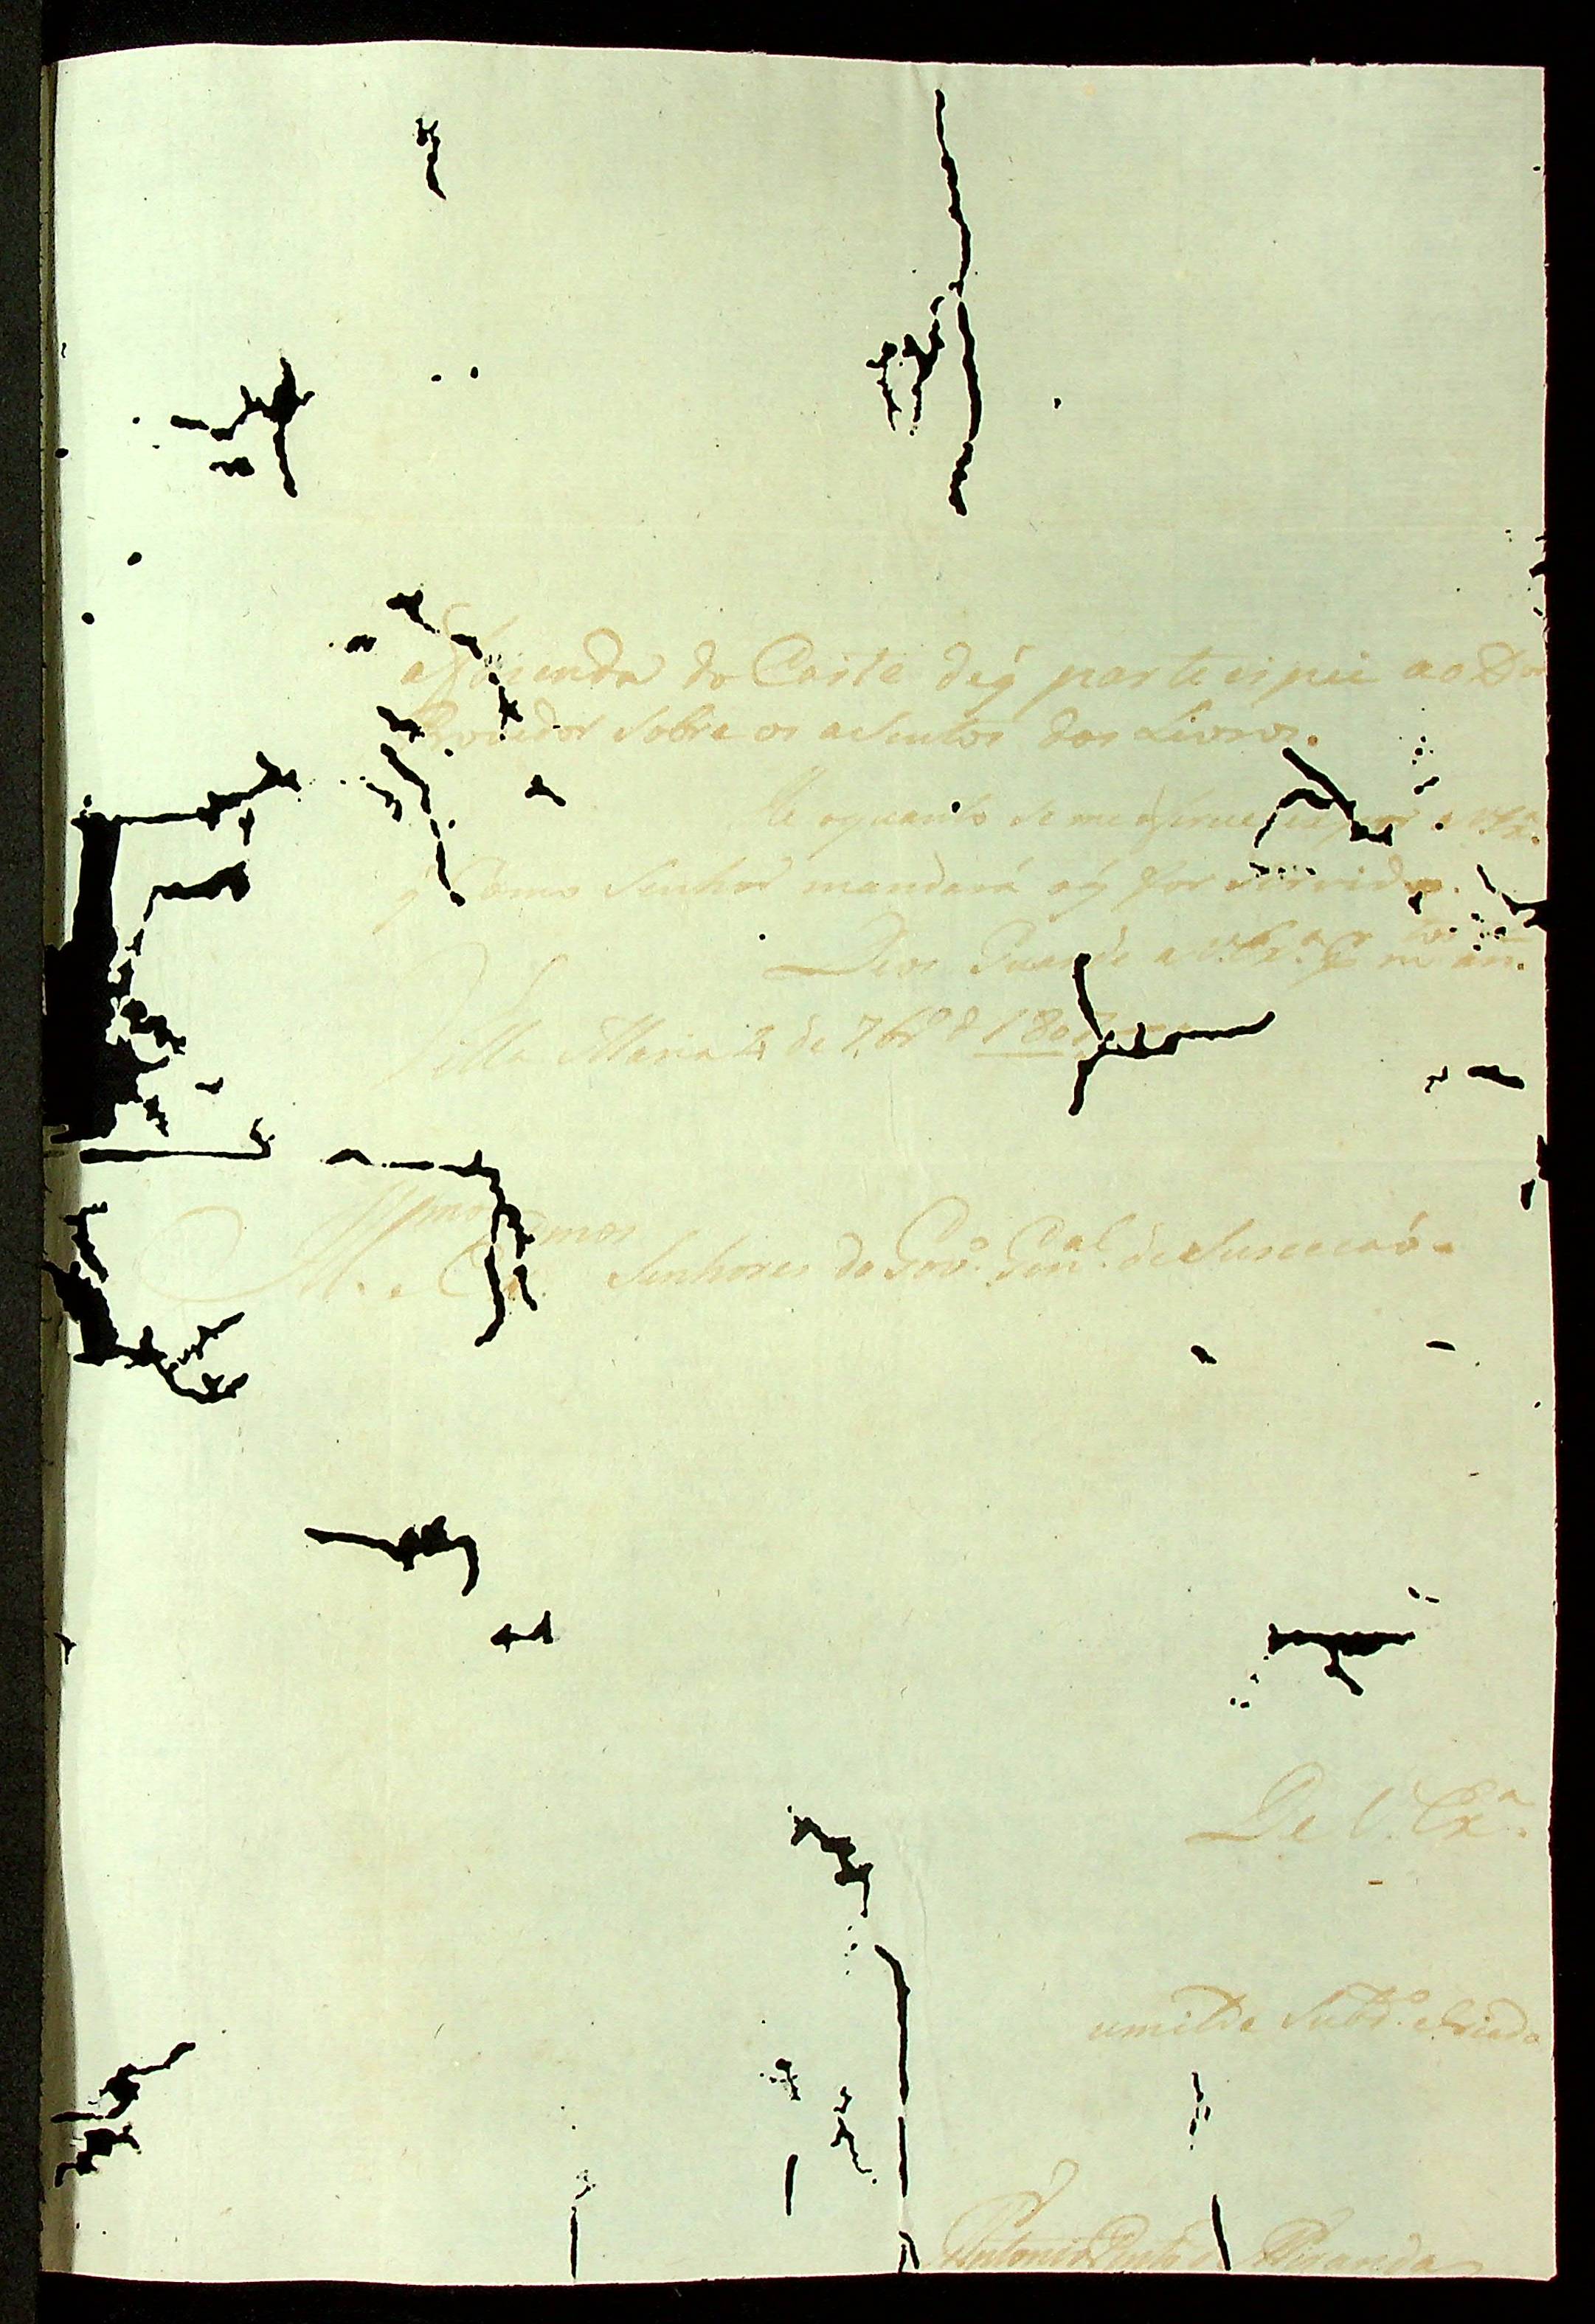 afazenda do Corte deq̃ partecipei ao D.or
Provedor sobre os asentos dos Livros.
He oquanto se me oferece a V. Ex.ª
q̃ Como Senhor mandará oq̃ for servido.
Deos Guarde a V. Ex.ª m.tos an.
Villa Maria 2 de 7.bro d 180
Ill.mos e Ex.mos Senhores do Gov.º Gen.al de Suseccaó.
De V. Ex.ª
umilde Subd.º e Criado
Antonio Pinto Miranda